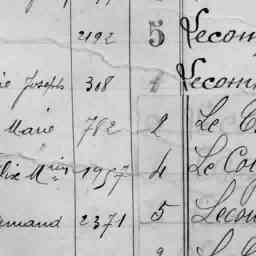 2192 5 Lecom
ie Joseph 318 1 Lecom
Marie 782 2 Le C
lix Mrin 1957 4 Le Co
ernand 2371 5 Lecom